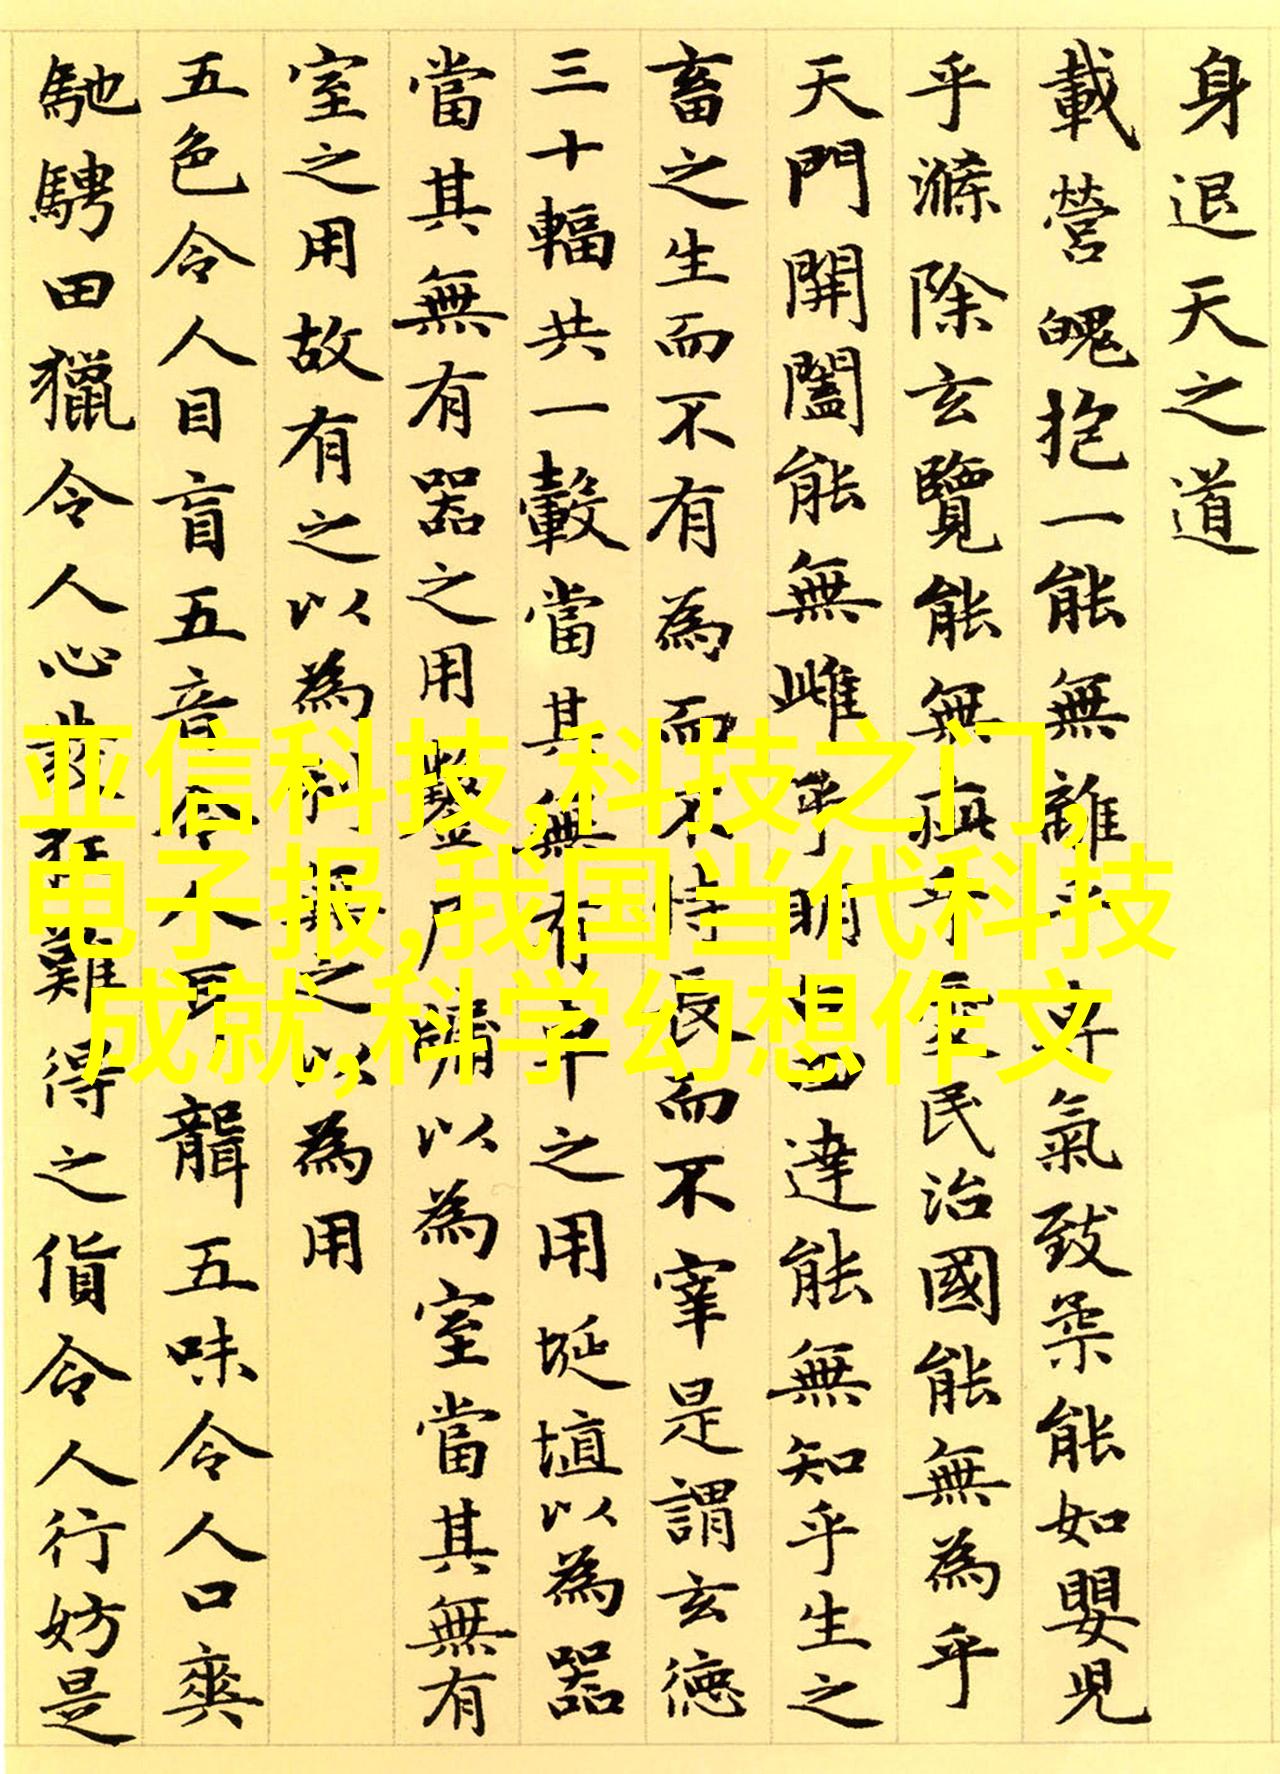 身退天之道
載營魄抱一能無離乎氣致柔能如嬰兒
乎滌除玄覽能無疵乎愛民治國能無為乎
天門開闔能無雌乎明白四達能無知乎生之
畜之生而不有為而不恃長而不宰是謂玄德
三十輻共一轂當其無有車之用埏埴以為器
當其無有器之用鑿戶牖以為室當其無有
室之用故有之以為利無之以為用
五色令人目盲五音令人耳聾五味令人口爽
馳騁田獵令人心發狂難得之貨令人行妨是
亚信科技,科技之门,
电子报,我国当代科技
成就,科学幻想作文